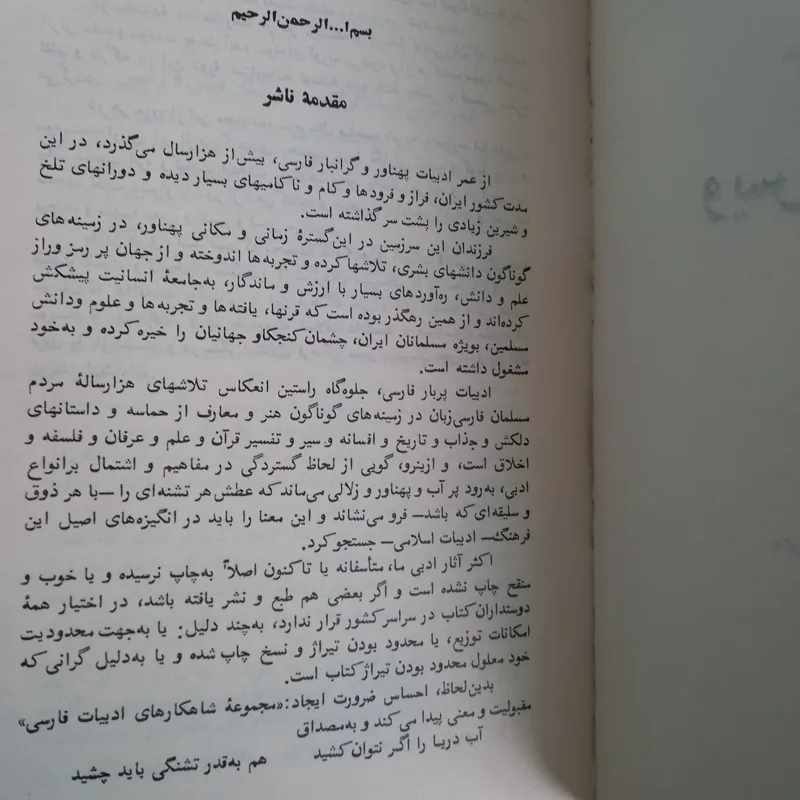 بسم ا...الرحمن الرحیم
مقدمهٔ ناشر
از عمر ادبیات پهناور و گرانبار فارسی، بیش از هزارسال می‌گذرد، در این
مدت کشور ایران، فراز و فرودها و کام و ناکامیهای بسیار دیده و دورانهای تلخ
و شیرین زیادی را پشت سر گذاشته است.
فرزندان این سرزمین در این گسترهٔ زمانی و مکانی پهناور، در زمینه‌های
گوناگون دانشهای بشری، تلاشها کرده و تجربه‌ها اندوخته و از جهان پر رمز وراز
علم و دانش، ره‌آوردهای بسیار با ارزش و ماندگار، به‌جامعهٔ انسانیت پیشکش
کرده‌اند و از همین رهگذر بوده است که قرنها، یافته‌ها و تجربه‌ها و علوم ودانش
مسلمین، بویژه مسلمانان ایران، چشمان کنجکاو جهانیان را خیره کرده و به‌خود
مشغول داشته است.
ادبیات پربار فارسی، جلوه‌گاه راستین انعکاس تلاشهای هزارسالهٔ مردم
مسلمان فارسی‌زبان در زمینه‌های گوناگون هنر و معارف از حماسه و داستانهای
دلکش و جذاب و تاریخ و افسانه و سیر و تفسیر قرآن و علم و عرفان و فلسفه و
اخلاق است، و ازینرو، گویی از لحاظ گستردگی در مفاهیم و اشتمال برانواع
ادبی، به‌رود پر آب و پهناور و زلالی می‌ماند که عطش هر تشنه‌ای را —با هر ذوق
و سلیقه‌ای که باشد— فرو می‌نشاند و این معنا را باید در انگیزه‌های اصیل این
فرهنگ— ادبیات اسلامی— جستجو کرد.
اکثر آثار ادبی ما، متأسفانه یا تاکنون اصلاً به‌چاپ نرسیده و یا خوب و
منقح چاپ نشده است و اگر بعضی هم طبع و نشر یافته باشد، در اختیار همهٔ
دوستداران کتاب در سراسر کشور قرار ندارد، به‌چند دلیل: یا به‌جهت محدودیت
امکانات توزیع، یا محدود بودن تیراژ و نسخ چاپ شده و یا به‌دلیل گرانی که
خود معلول محدود بودن تیراژ کتاب است.
بدین‌لحاظ، احساس ضرورت ایجاد: «مجموعهٔ شاهکارهای ادبیات فارسی»
مقبولیت و معنی پیدا می‌کند و به‌مصداق
آب دریا را اگر نتوان کشید
هم به‌قدر تشنگی باید چشید